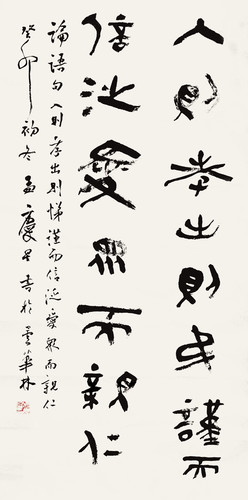 入則孝出則弟謹而
信泛愛眾而親仁
論語句 入則孝出則悌謹而信泛愛眾而親仁
癸卯初冬孟慶星書於雲華林